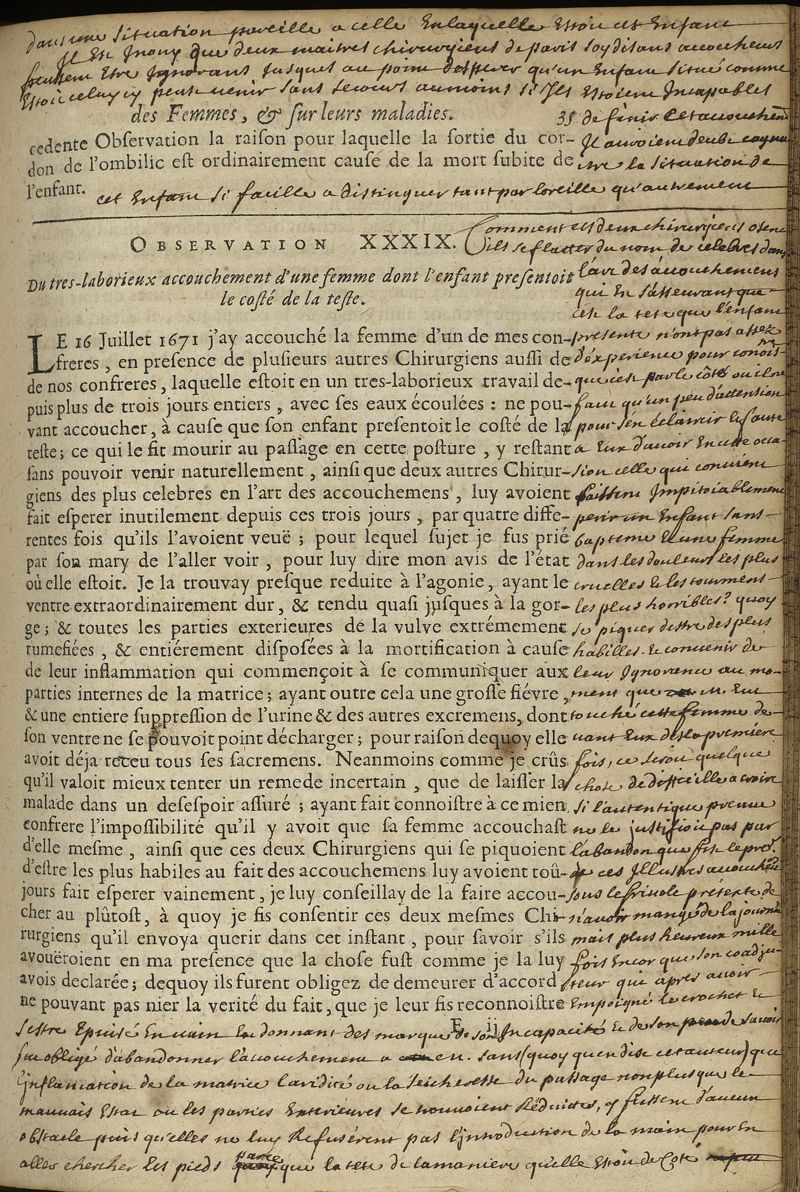 dans une situation pareille a celle En laquelle Estoit cet Enfant
Il Est Inouy que deux maitres chirurgiens de paris soy disans accoucheurs
fussent Etre Ignorans jusques au point desperer qu'un Enfant situé comme
Estoit celuy cy peust venir sans secours au moins s'Ils Estoient Incapables
des Femmes, & sur leurs maladies. 35
de finir l'accouchemt
cedente Observation la raison pour laquelle la sortie du cor-
Ils auroient deub cognoi
don de l'ombilic est ordinairement cause de la mort subite de
stre la situation de
l'enfant.
cet Enfant si facille a distinguer tant par loreille qu'autrement
OBSERVATION XXXIX.
Comment ces deux chirurgiens osent
ils se flatter du nom de celebres dans
Du tres-laborieux accouchement d'une femme dont l'enfant presentoit
l'art des accouchemens
le costé de la teste.
qui En s'asseurant que
cest la tete que l'enfant
LE 16 Juillet 1671 j'ay accouché la femme d'un de mes con-
presente n'ont pas assez
freres, en presence de plusieurs autres Chirurgiens aussi de
d'experience pour conois-
de nos confreres, laquelle estoit en un tres-laborieux travail de-
que cest par le côté ou il ne
puis plus de trois jours entiers, avec ses eaux écoulées : ne pou-
faut qu'un peu d'attention
vant accoucher, à cause que son enfant presentoit le costé de la
pour s'en éclaircir
teste; ce qui le fit mourir au passage en cette posture, y restant
a Eux d'avoir En cette occa
sans pouvoir venir naturellement, ainsi que deux autres Chirur-
sion celle qui
giens des plus celebres en l'art des accouchemens, luy avoient
Impitoiablement
fait esperer inutilement depuis ces trois jours, par quatre diffe-
perir un Enfant sans
rentes fois qu'ils l'avoient veuë ; pour lequel sujet je fus prié
bapteme Et une femme
par son mary de l'aller voir, pour luy dire mon avis de l'état
dans les douleurs les plus
où elle estoit. Je la trouvay presque reduite à l'agonie, ayant le
cruelles & les tourmens
ventre extraordinairement dur, & tendu quasi jusques à la gor-
les plus horribles? quoy
ge ; & toutes les parties exterieures de la vulve extrémement
se piquer destre des plus
tumefiées, & entiérement disposées à la mortification à cause
habilles. & convenir de
de leur inflammation qui commençoit à se communiquer aux
leur Ignorence au mo-
parties internes de la matrice ; ayant outre cela une grosse fiévre,
ment que m. Eut
& une entiere suppression de l'urine & des autres excremens, dont
touché cette femme de
son ventre ne se pouvoit point décharger ; pour raison dequoy elle
vant Eux des la premiere
avoit déja receu tous ses sacremens. Neanmoins comme je crûs
fois, ce seroit quelque
qu'il valoit mieux tenter un remede incertain, que de laisser la
chose de difficille a croire
malade dans un desespoir assuré ; ayant fait connoistre à ce mien
si l'autentique preuve
confrere l'impossibilité qu'il y avoit que sa femme accouchast
ne le justifioit pas par
d'elle mesme, ainsi que ces deux Chirurgiens qui se piquoient
labandon que fist le pre.r
d'estre les plus habiles au fait des accouchemens luy avoient toû-
de ces Illustres accoucheurs
jours fait esperer vainement, je luy conseillay de la faire accou-
sous le frivole pretexte de
cher au plûtost, à quoy je fis consentir ces deux mesmes Chi-
n'avoir mangé de la journée
rurgiens qu'il envoya querir dans cet instant, pour savoir s'ils
mais plus heureux mille
avoüeroient en ma presence que la chose fust comme je la luy
fois Encor que son coadju
avois declarée ; dequoy ils furent obligez de demeurer d'accord
teur qui apres avoir
ne pouvant pas nier la verité du fait, que je leur fis reconnoistre
Empoigné le crochet &
E ij
sestre Epuisé En vain En donnant des marque de son Incapacité & de son peu de savoir
fut obligé d'abandonner l'accouchement a m. sans (quoy qu'en dise cet auteur) que
l'inflamation de la matrice l'aridité ou la seicheresse du passage non plus que le
mauvais Estat ou les parties Exterieures se trouvoient Reduittes, y fussent d'aucun
obstacle puis qu'elles ne luy Refuserent pas l'introduction de la main pour En
aller chercher les pieds parce que la tete de la maniere qu'elle Estoit de Coté